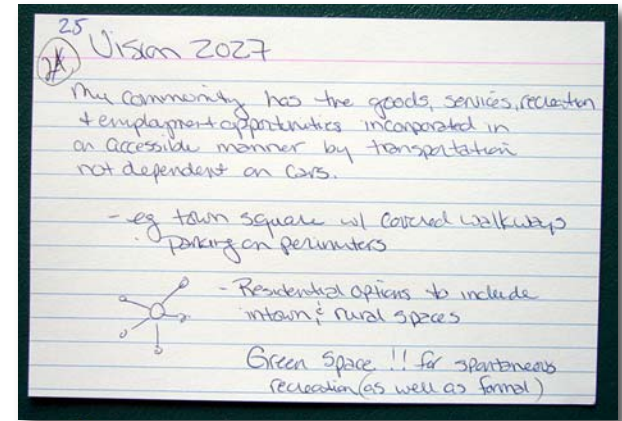 25
Vision 2027
My community has the goods, services, recreation
+ employment opportunities incorporated in
an accessible manner by transportation
not dependent on cars.
- eg town square w/ covered walkways
· parking on perimiters
- Residential options to include
intown & rural spaces
Green Space !! for spontaneous
recreation (as well as formal)